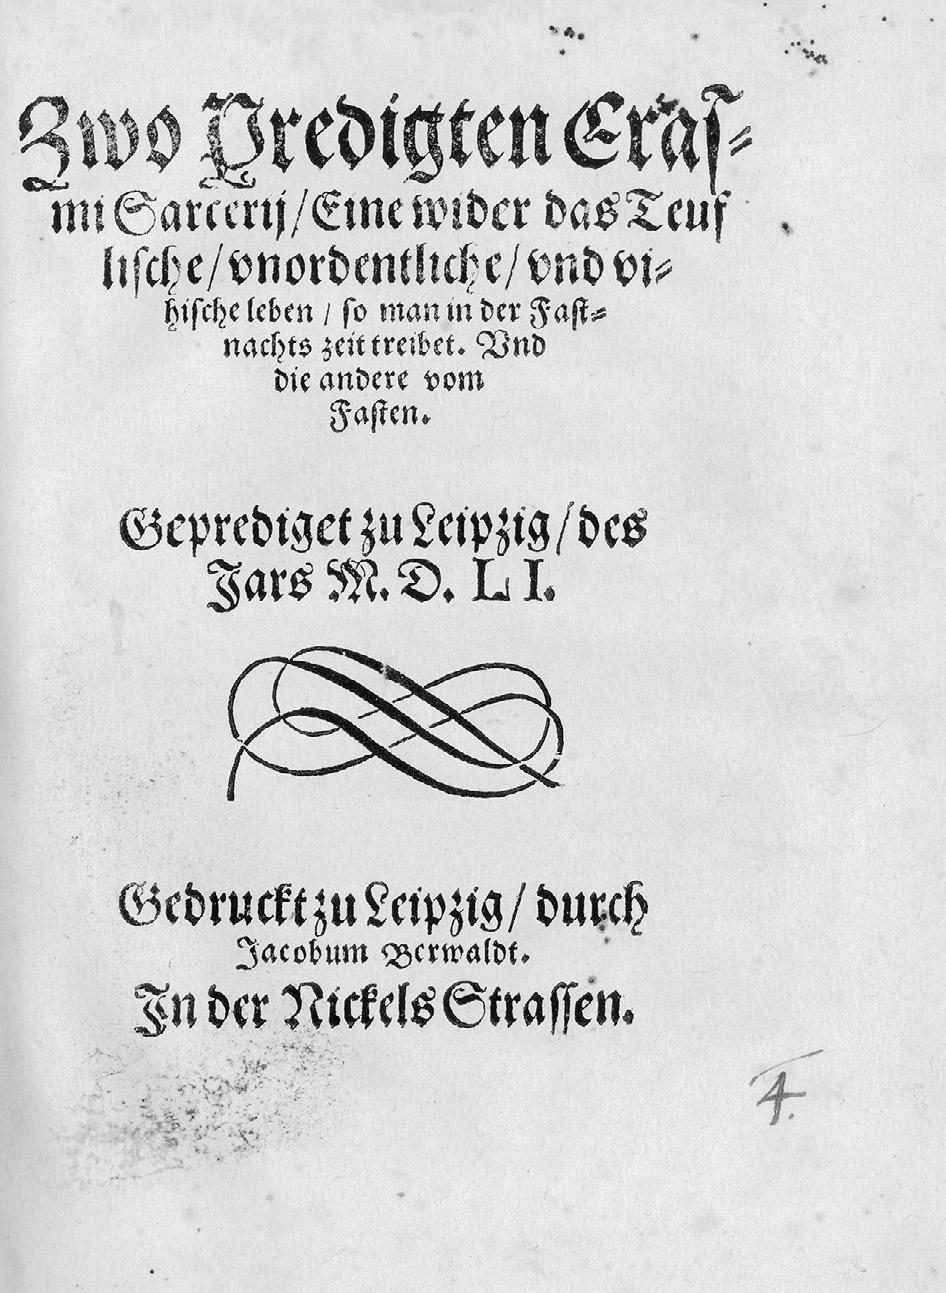 Zwo Predigten Eras⸗
mi Sarcerij/Eine wider das Teuf
lische/vnordentliche/vnd vi⸗
hische leben / so man in der Fast⸗
nachts zeit treibet. Vnd
die andere vom
Fasten.
Geprediget zu Leipzig/des
Jars M. D. L I.
Gedruckt zu Leipzig/ durch
Jacobum Berwaldt.
In der Nickels Strassen.
4.